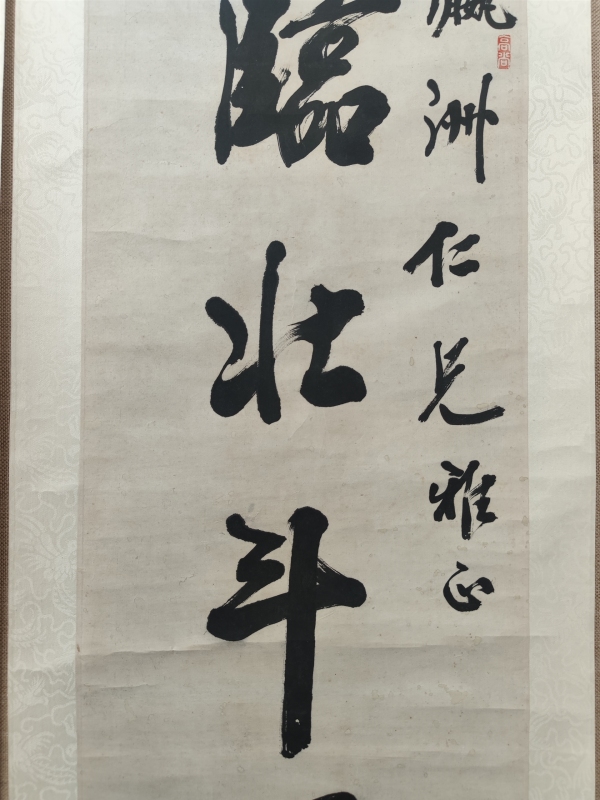 瀛洲仁兄雅正
臨壯斗